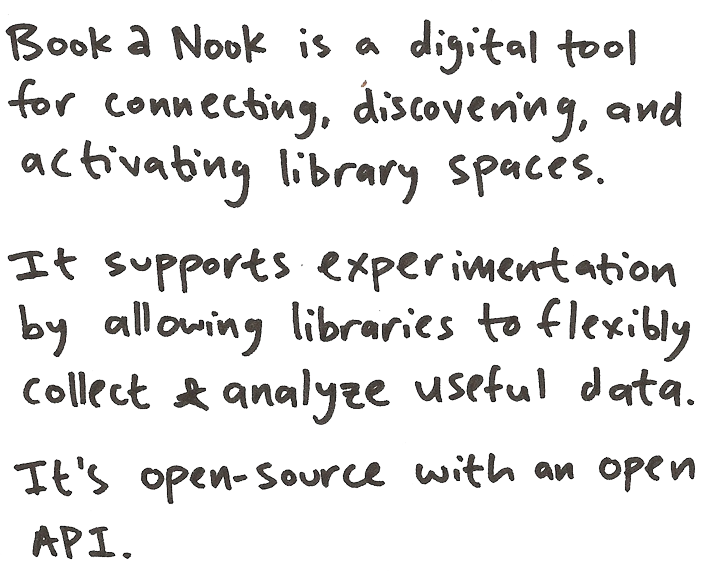 Book a Nook is a digital tool
for connecting, discovering, and
activating library spaces.
It supports experimentation
by allowing libraries to flexibly
collect & analyze useful data.
It's open-source with an open
API.